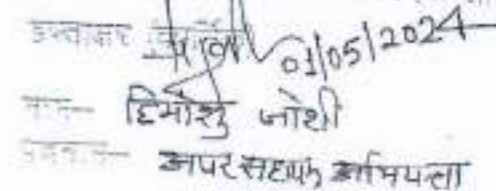 हस्ताक्षर 01/05/2024
नाम- हिमांशु जोशी
पदनाम- अपर सहायक अभियन्ता